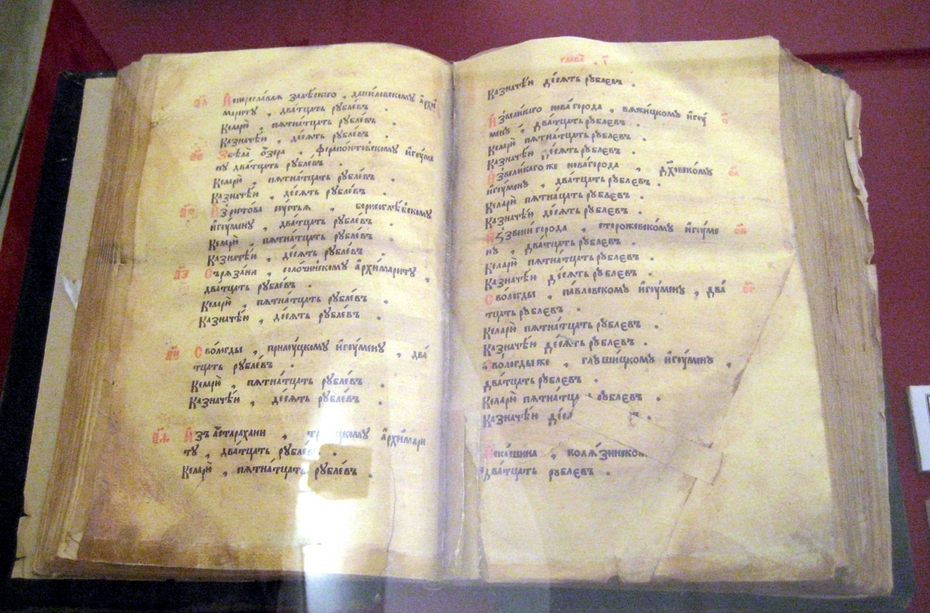 Переславля залѣского , даниловскому архи
мариту , дватцать рублевъ .
Келарю , пятнатцать рублевъ .
Казначѣи , десять рублевъ .
Збѣла озера , ферапонтовскому игуме
ну дватцать рублевъ .
Келарю , пятнатцать рублевъ .
Казначѣи , десять рублевъ .
борисоглѣбскому
игумену , дватцать рублевъ .
Келарю пятнатцать рублевъ .
Казначѣи , десять рублевъ .
Сърязана , солочинскому архимариту ,
дватцать рублевъ .
Келарю , пятнатцать рублевъ .
Казначѣи , десять рублевъ .
Сволегды , прилуцкому игумену , два
тцать рублевъ .
Келарю , пятнатцать рублевъ .
Казначѣи , десять рублевъ .
Изъ астарахани , архимари
ту , дватцать рублевъ
Келарю , пятнатцать рублевъ .
глава
Казначѣи десять рублевъ .
Извеликаго нова города , вяжицкому игу
мену , дватцать рублевъ .
Келарю пятнатцать рублевъ .
Казначѣи десять рублевъ .
Извеликаго же новагорода , духовскому
игумену , дватцать рублевъ .
Келарю пятнатцать рублевъ .
Казначѣи десять рублевъ .
Иззвени города , сторожевскому игуме
ну , дватцать рублевъ .
Келарю пятнатцать рублевъ .
Казначѣи десять рублевъ .
Сволегды , павловскому игумену , два
тцать рублевъ .
Келарю пятнатцать рублевъ .
Казначѣи десять рублевъ .
Сволегды же , глушицкому игумену ,
дватцать рублевъ .
Келарю рублевъ .
Казначѣи
Искашина ,
дватцать рублевъ .